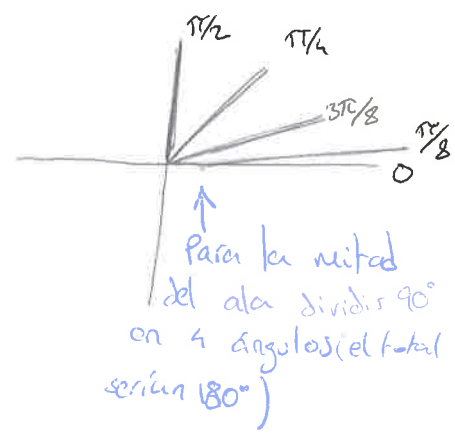 π/2
π/4
3π/8
π/8
0
Para la mitad
del ala dividis 90°
en 4 ángulos (el total
serían 180°)